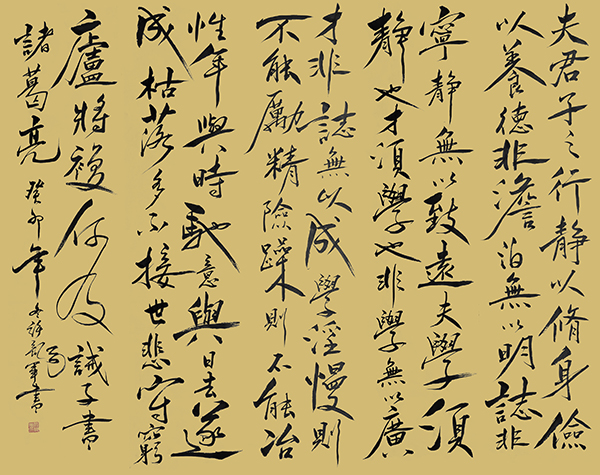 夫君子之行靜以脩身儉
以養德非澹泊無以明誌非
寧靜無以致遠夫學須
靜也才須學也非學無以廣
才非誌無以成學淫慢則
不能勵精險躁則不能冶
性年與時馳意與日去遂
成枯落多不接世悲守窮
廬將複何及誡子書
諸葛亮癸卯年書